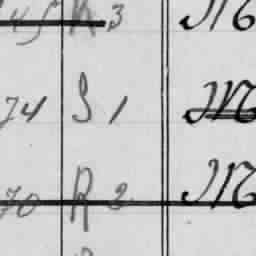 R 3 M
74 S 1 M
70 R 2 M